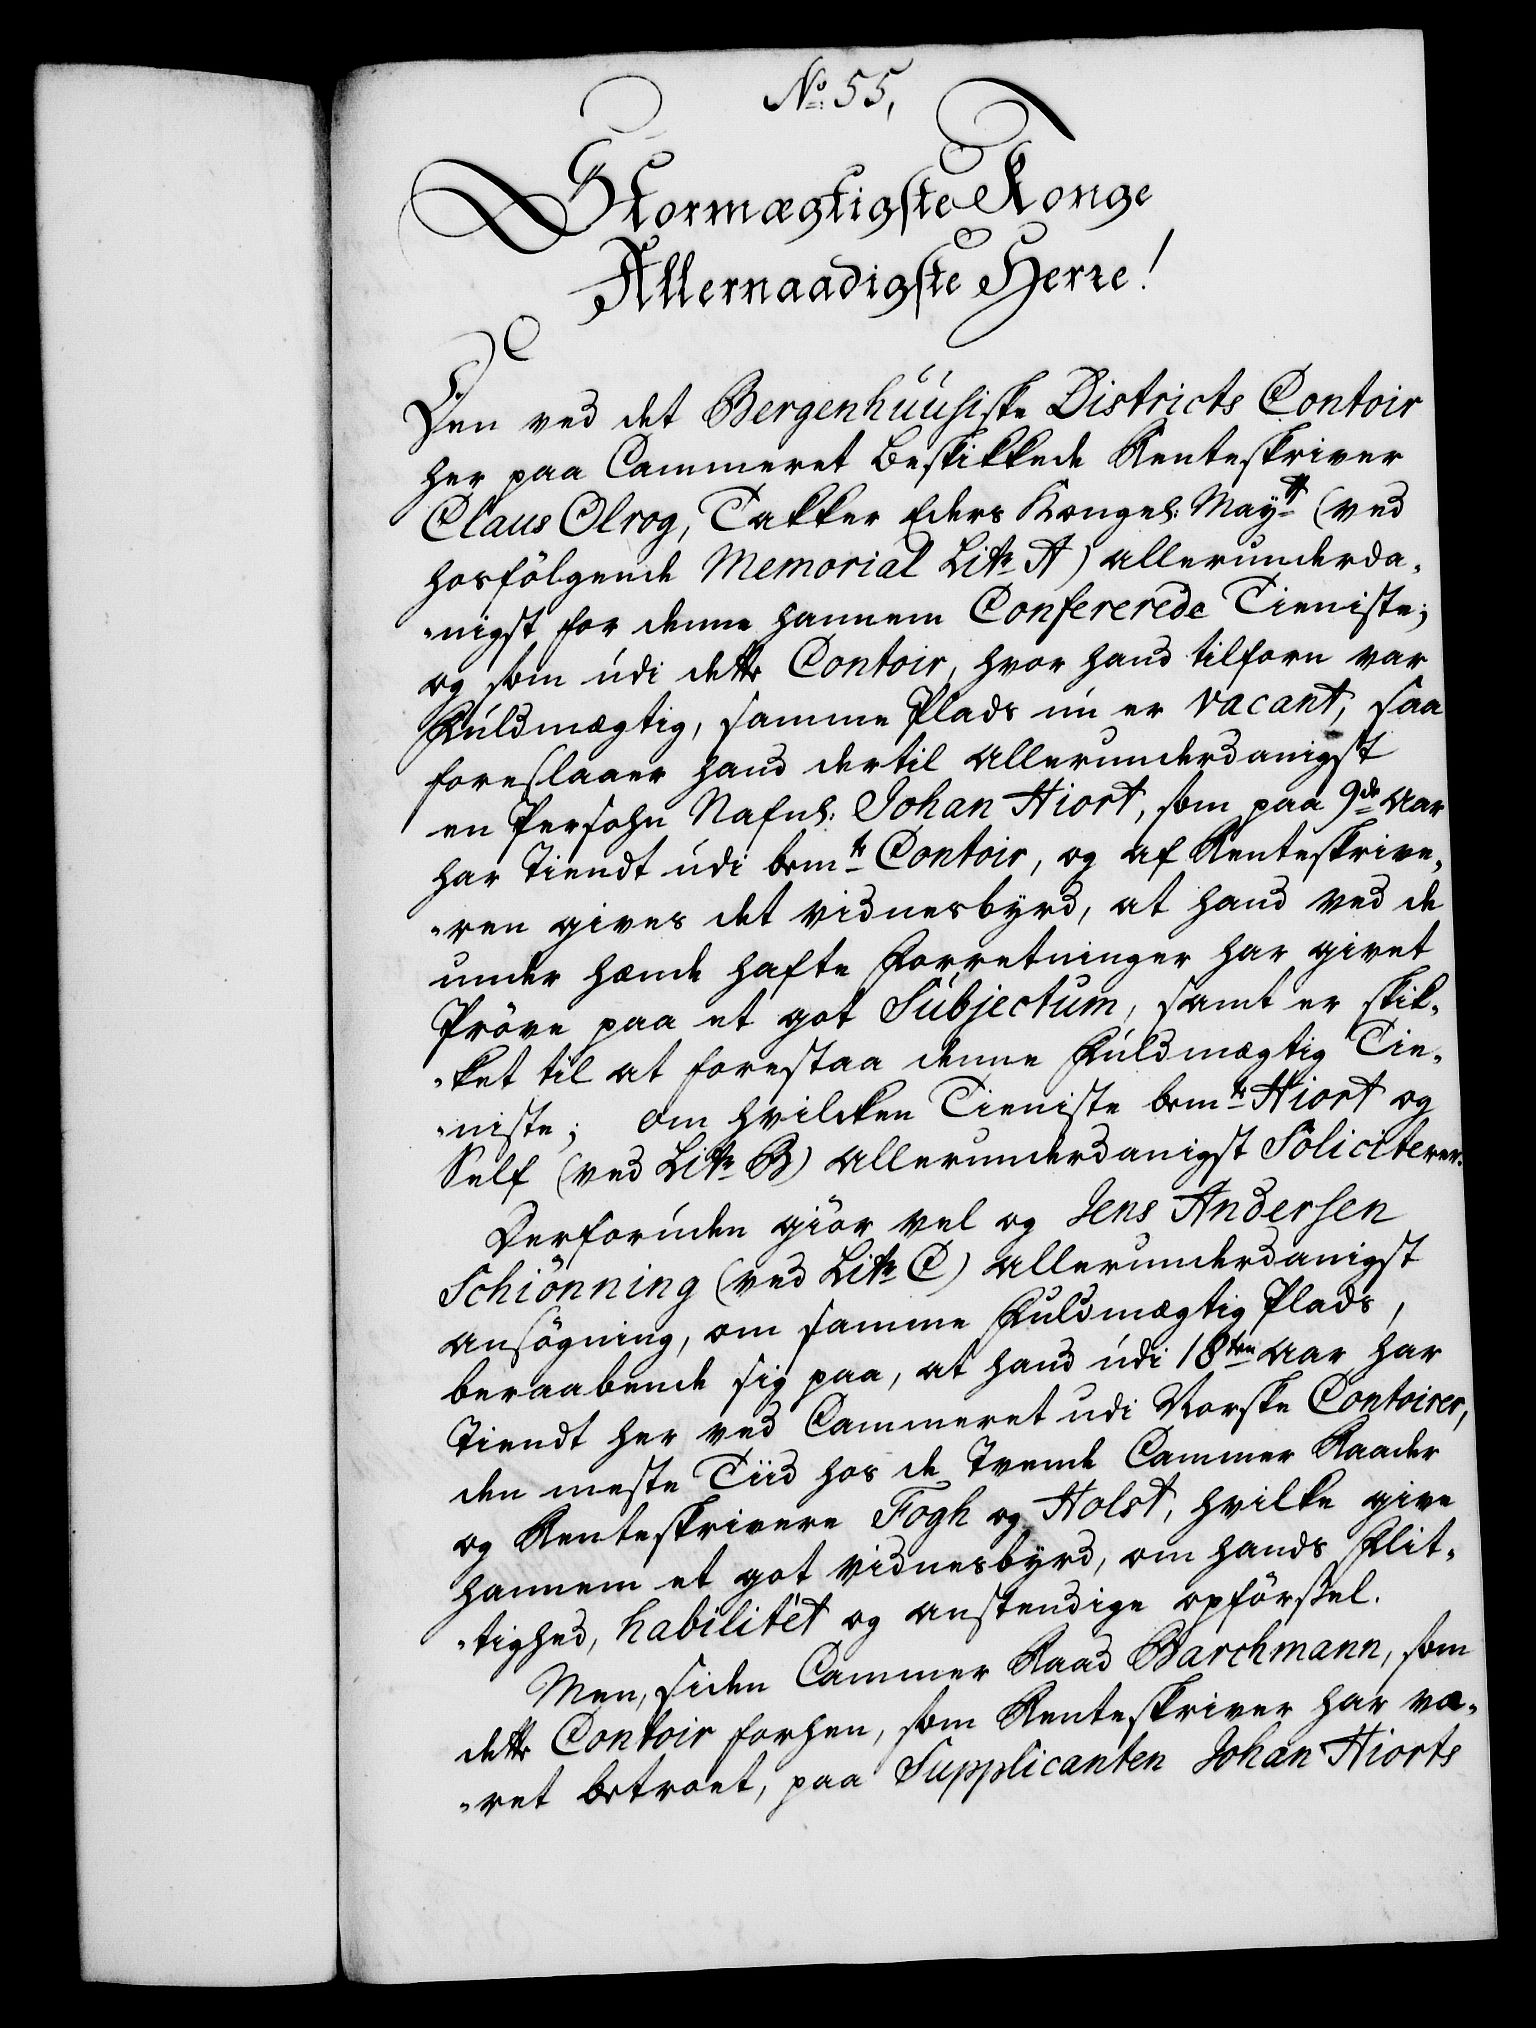 No: 55,
Stormægtigste Konge
Allernaadigste Herre!
Den ved det Bergenhuusiske Districts Contoir
her paa Cammeret beskikkede Renteskriver
Claus Olrog, Takker Eders Kongel: Mayts (ved
hosfölgende Memorial Litr A) allerunderda-
-nigst for denne hannem Confererede Tieniste;
og som udi dette Contoir, hvor hand tilforn var
Fuldmægtig, samme Plads nu er vacant, saa
foreslaaer hand dertil allerunderdanigst
en Persohn Nafnl: Johan Hiort, som paa 9de Aar
har Tiendt udi bemte Contoir, og af Renteskrive-
-ren gives det vidnesbyrd, at hand ved de
under hænde hafte Forretninger har givet
Pröve paa et got Subjectum, samt er skik-
-ket til at forestaa denne Fuldmægtig Tie-
-niste; om hvilcken Tieniste bemte Hiort og
Self (ved Litr B) allerunderdanigst Soliciterer.
Derforuden giör vel og Jens Andersen
Schiönning (ved Litr C) allerunderdanigst
ansögning, om samme Fuldmægtig Plads,
beraabende sig paa, at hand udi 18ten Aar har
Tiendt her ved Cammeret udi Norske Contoirer,
den meste Tiid hos de Tvende Cammer Raader
og Renteskrivere Fogh og Holst, hvilke give
hannem et got vidnesbyrd, om hands Flit-
-tighed, habilitét og anstendige opförssel.
Men, siden Cammer Raad Barchmann, som
dette Contoir forhen, som Renteskriver har væ-
-ret betroet, paa Supplicanten Johan Hiorts